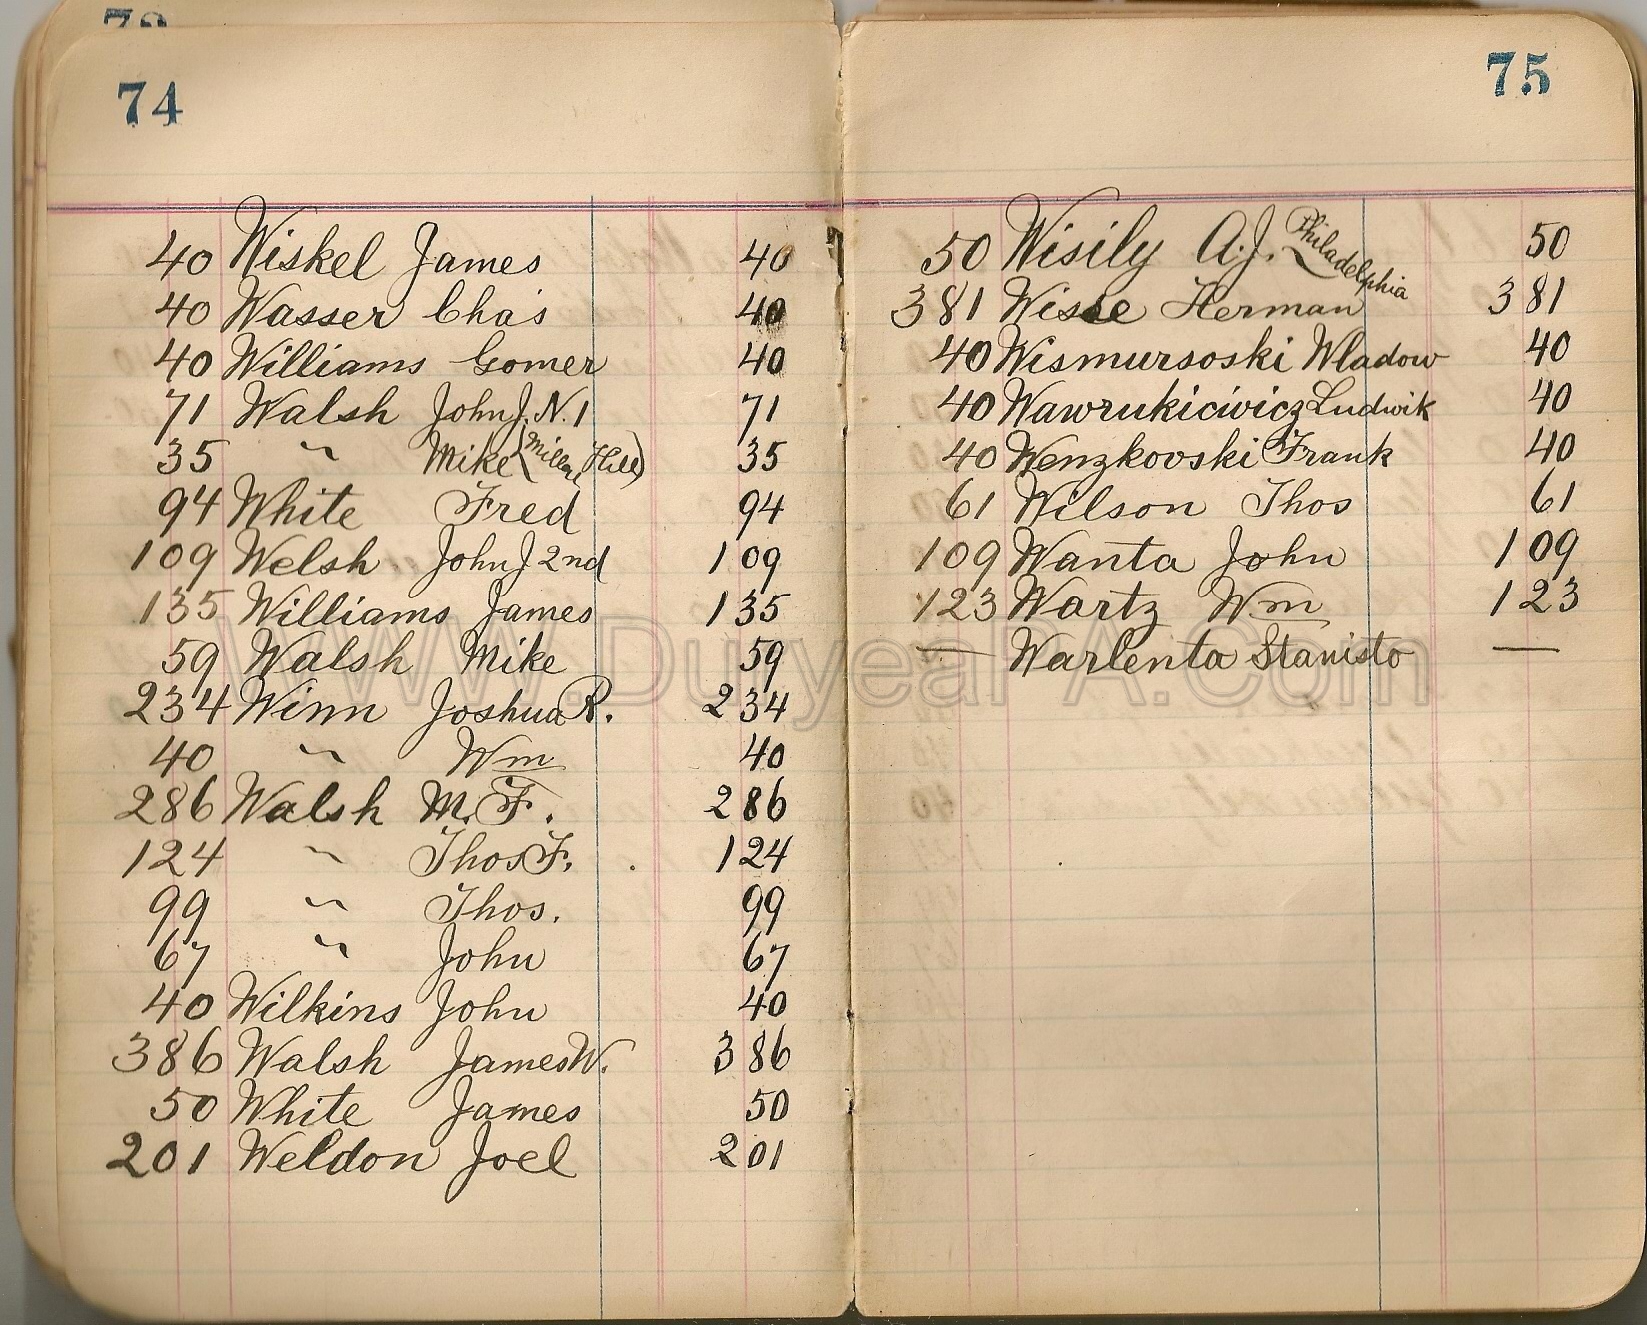 73
74
40 Wiskel James 40
40 Wasser Chas 40
40 Williams Gomer 40
71 Walsh John J. N. 1 71
35 " Mike (Hill) 35
94 White Fred 94
109 Welsh John J 2nd 109
135 Williams James 135
59 Walsh Mike 59
234 Winn Joshua R. 234
40 " Wm 40
286 Walsh M. F. 286
124 " Thos F. 124
99 " Thos. 99
67 " John 67
40 Wilkins John 40
386 Walsh James W. 386
50 White James 50
201 Weldon Joel 201
75
50 Wisily A. J. Philadelphia 50
381 Wisse Herman 381
40 Wismursoski Wladow 40
40 Wawrukicivicz Ludwik 40
40 Wenzkovski Frank 40
61 Wilson Thos 61
109 Wanta John 109
123 Wartz Wm 123
— Warlenta Stanisto —
www.DuryeaPA.com